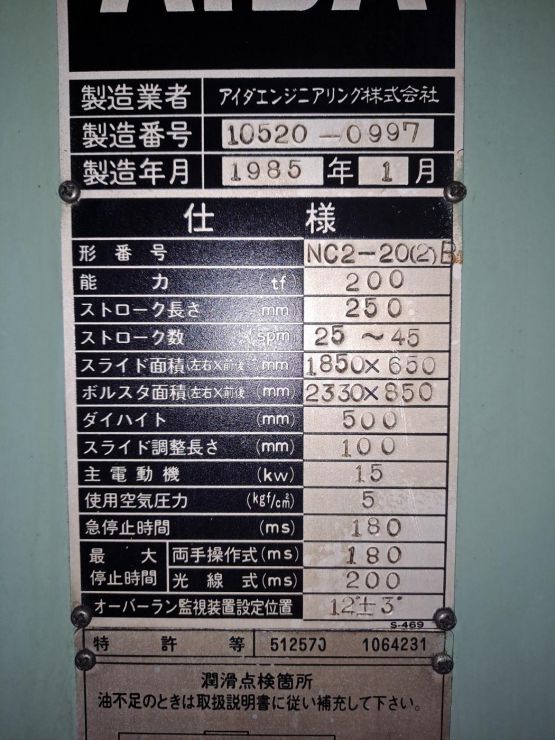 AIDA
製造業者 アイダエンジニアリング株式会社
製造番号 10520-0997
製造年月 1985年1月
仕様
形番号 NC2-20(2)B
能力 (tf) 200
ストローク長さ (mm) 250
ストローク数 (spm) 25~45
スライド面積(左右×前後 mm) 1850×650
ボルスタ面積(左右×前後 mm) 2330×850
ダイハイト (mm) 500
スライド調整長さ (mm) 100
主電動機 (kw) 15
使用空気圧力 (kgf/c㎡) 5
急停止時間 (ms) 180
最大停止時間 両手操作式(ms) 180
光線式(ms) 200
オーバーラン監視装置設定位置 12°±3°
S-469
特許等 512570 1064231
潤滑点検箇所
油不足のときは取扱説明書に従い補充して下さい。